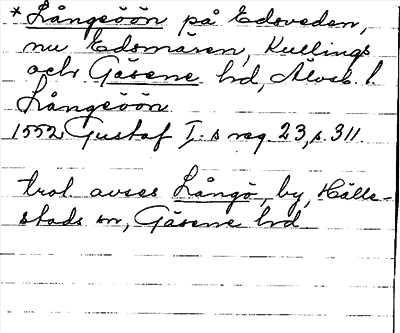 * Långeöön på Edsveden,
nu Edsmären, Kullings
och Gäsene hd, Älvsb. l.
Långeöön
1552 Gustaf I:s reg. 23, s. 311.
trol avses Långö, by, Hälle-
stads sn, Gäsene hd